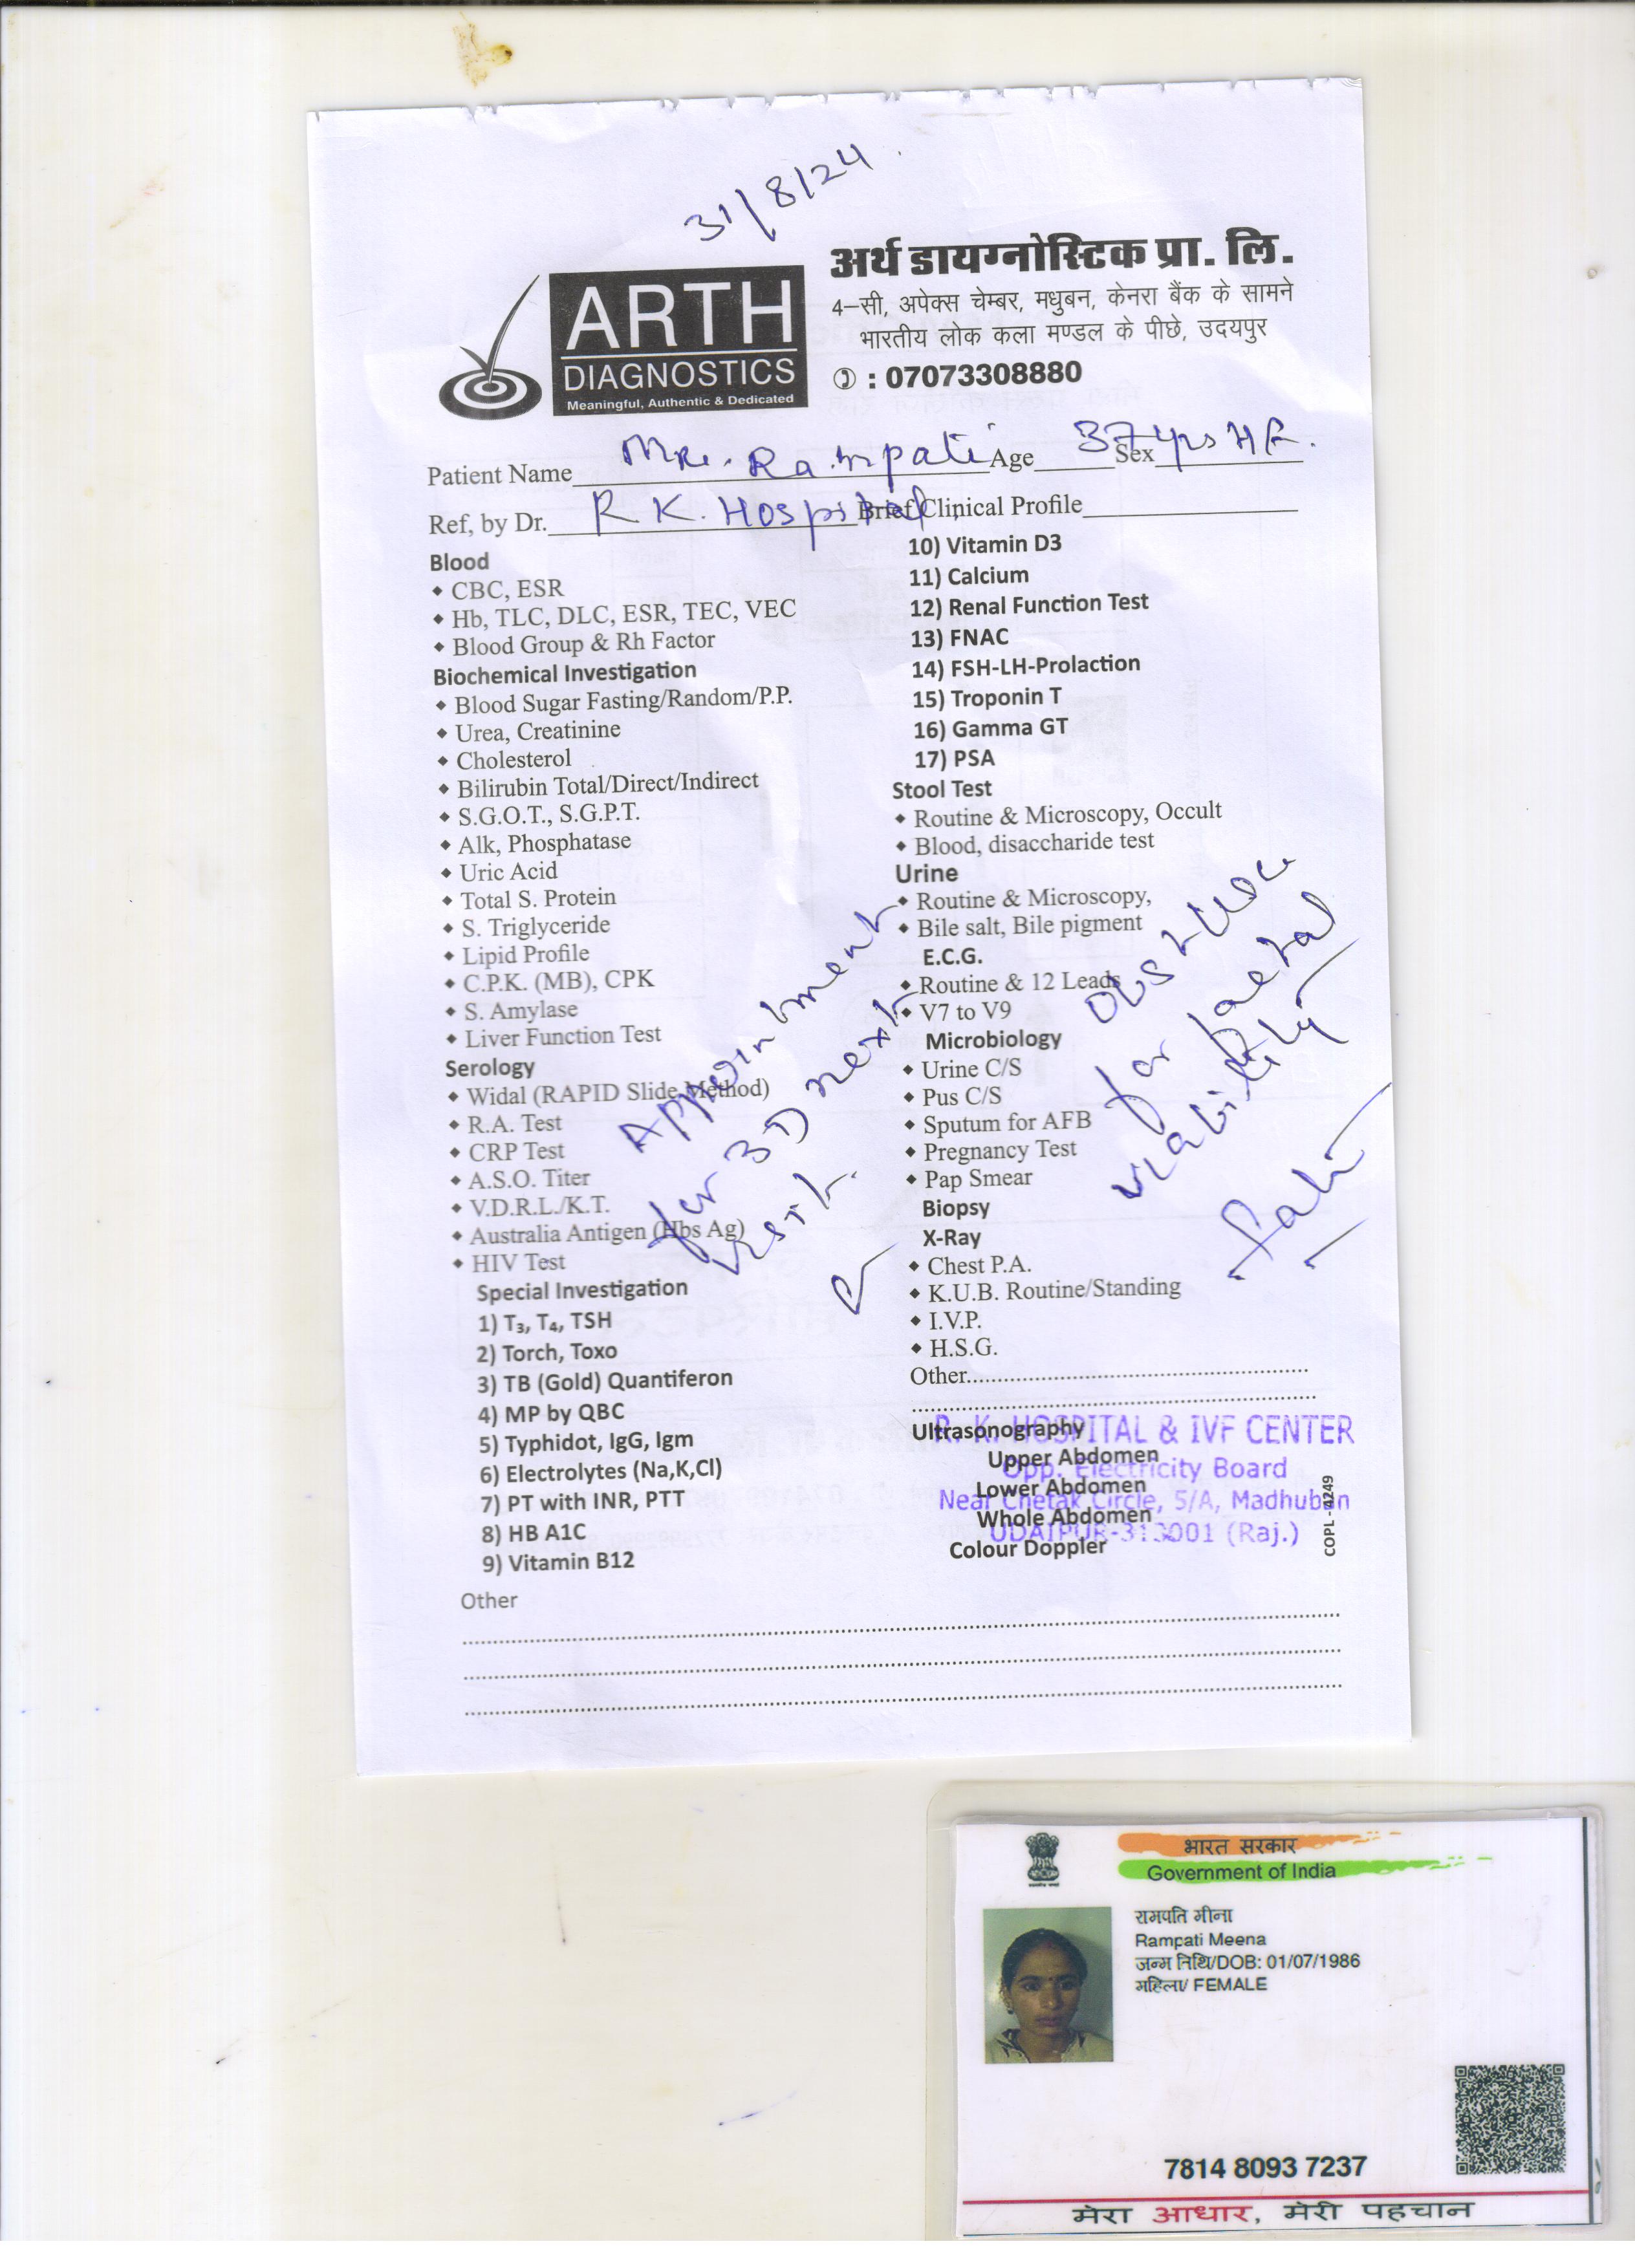 31/8/24
ARTH
DIAGNOSTICS
Meaningful, Authentic & Dedicated
अर्थ डायग्नोस्टिक प्रा. लि.
4–सी, अपेक्स चेम्बर, मधुबन, केनरा बैंक के सामने
भारतीय लोक कला मण्डल के पीछे, उदयपुर
: 07073308880
Patient Name Mrs. Rampati Age 37 yrs Sex F.
Ref, by Dr. R.K. Hospital Brief Clinical Profile
Blood
CBC, ESR
Hb, TLC, DLC, ESR, TEC, VEC
Blood Group & Rh Factor
Biochemical Investigation
Blood Sugar Fasting/Random/P.P.
Urea, Creatinine
Cholesterol
Bilirubin Total/Direct/Indirect
S.G.O.T., S.G.P.T.
Alk, Phosphatase
Uric Acid
Total S. Protein
S. Triglyceride
Lipid Profile
C.P.K. (MB), CPK
S. Amylase
Liver Function Test
Serology
Widal (RAPID Slide Method)
R.A. Test
CRP Test
A.S.O. Titer
V.D.R.L./K.T.
Australia Antigen (Hbs Ag)
HIV Test
Special Investigation
1) T₃, T₄, TSH
2) Torch, Toxo
3) TB (Gold) Quantiferon
4) MP by QBC
5) Typhidot, IgG, Igm
6) Electrolytes (Na,K,Cl)
7) PT with INR, PTT
8) HB A1C
9) Vitamin B12
Appointment
for 3D next
visit.
10) Vitamin D3
11) Calcium
12) Renal Function Test
13) FNAC
14) FSH-LH-Prolaction
15) Troponin T
16) Gamma GT
17) PSA
Stool Test
Routine & Microscopy, Occult
Blood, disaccharide test
Urine
Routine & Microscopy,
Bile salt, Bile pigment
E.C.G.
Routine & 12 Leads
V7 to V9
Microbiology
Urine C/S
Pus C/S
Sputum for AFB
Pregnancy Test
Pap Smear
Biopsy
X-Ray
Chest P.A.
K.U.B. Routine/Standing
I.V.P.
H.S.G.
Other
Obst
for faetal
viability
Ultrasonography
Upper Abdomen
Lower Abdomen
Whole Abdomen
Colour Doppler
R. K. HOSPITAL & IVF CENTER
Opp. Electricity Board
Near Chetak Circle, 5/A, Madhuban
UDAIPUR-313001 (Raj.)
COPL -4249
Other
भारत सरकार
Government of India
रामपति मीना
Rampati Meena
जन्म तिथि/DOB: 01/07/1986
महिला/ FEMALE
7814 8093 7237
मेरा आधार, मेरी पहचान